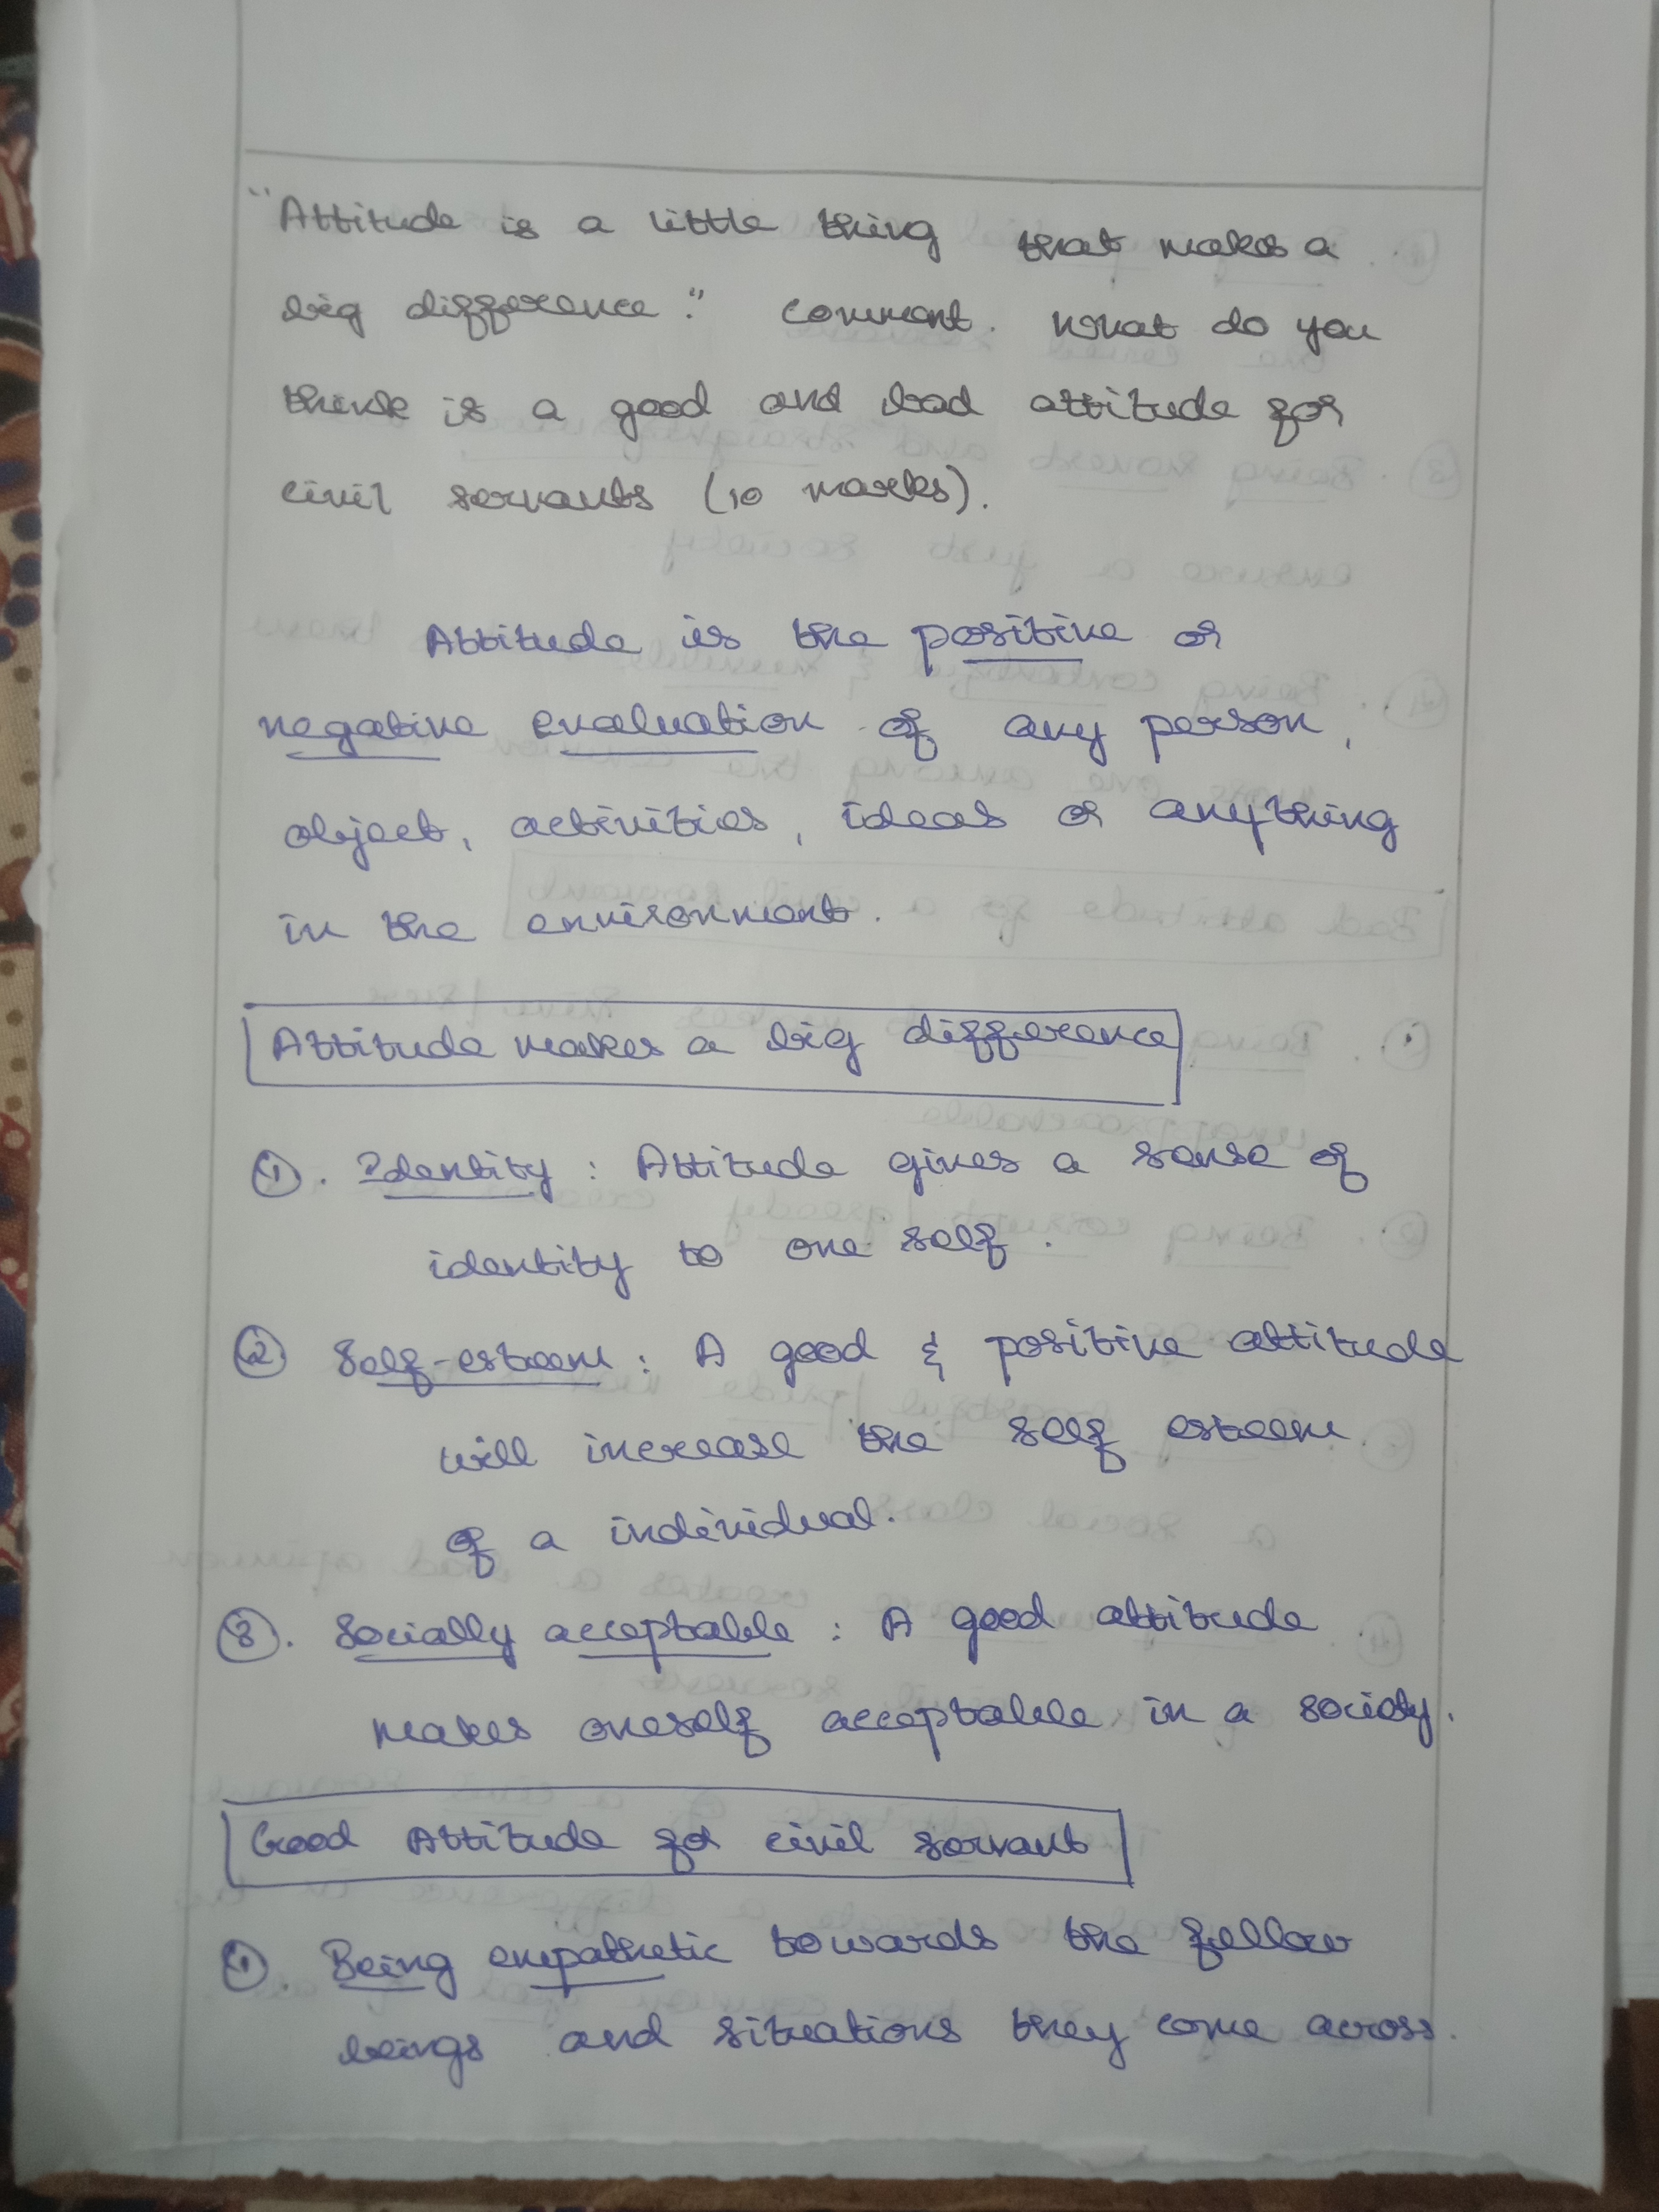 "Attitude is a little thing that makes a
big difference." Comment. What do you
think is a good and bad attitude for
civil servants (10 marks).
Attitude is the positive or
negative evaluation of any person,
object, activities, ideas or anything
in the environment.
Attitude makes a big difference
①. Identity : Attitude gives a sense of
identity to one self.
② Self-esteem : A good & positive attitude
will increase the self esteem
of a individual.
③. Socially acceptable : A good attitude
makes oneself acceptable in a society.
Good Attitude for civil servant
①. Being empathetic towards the fellow
beings and situations they come across.